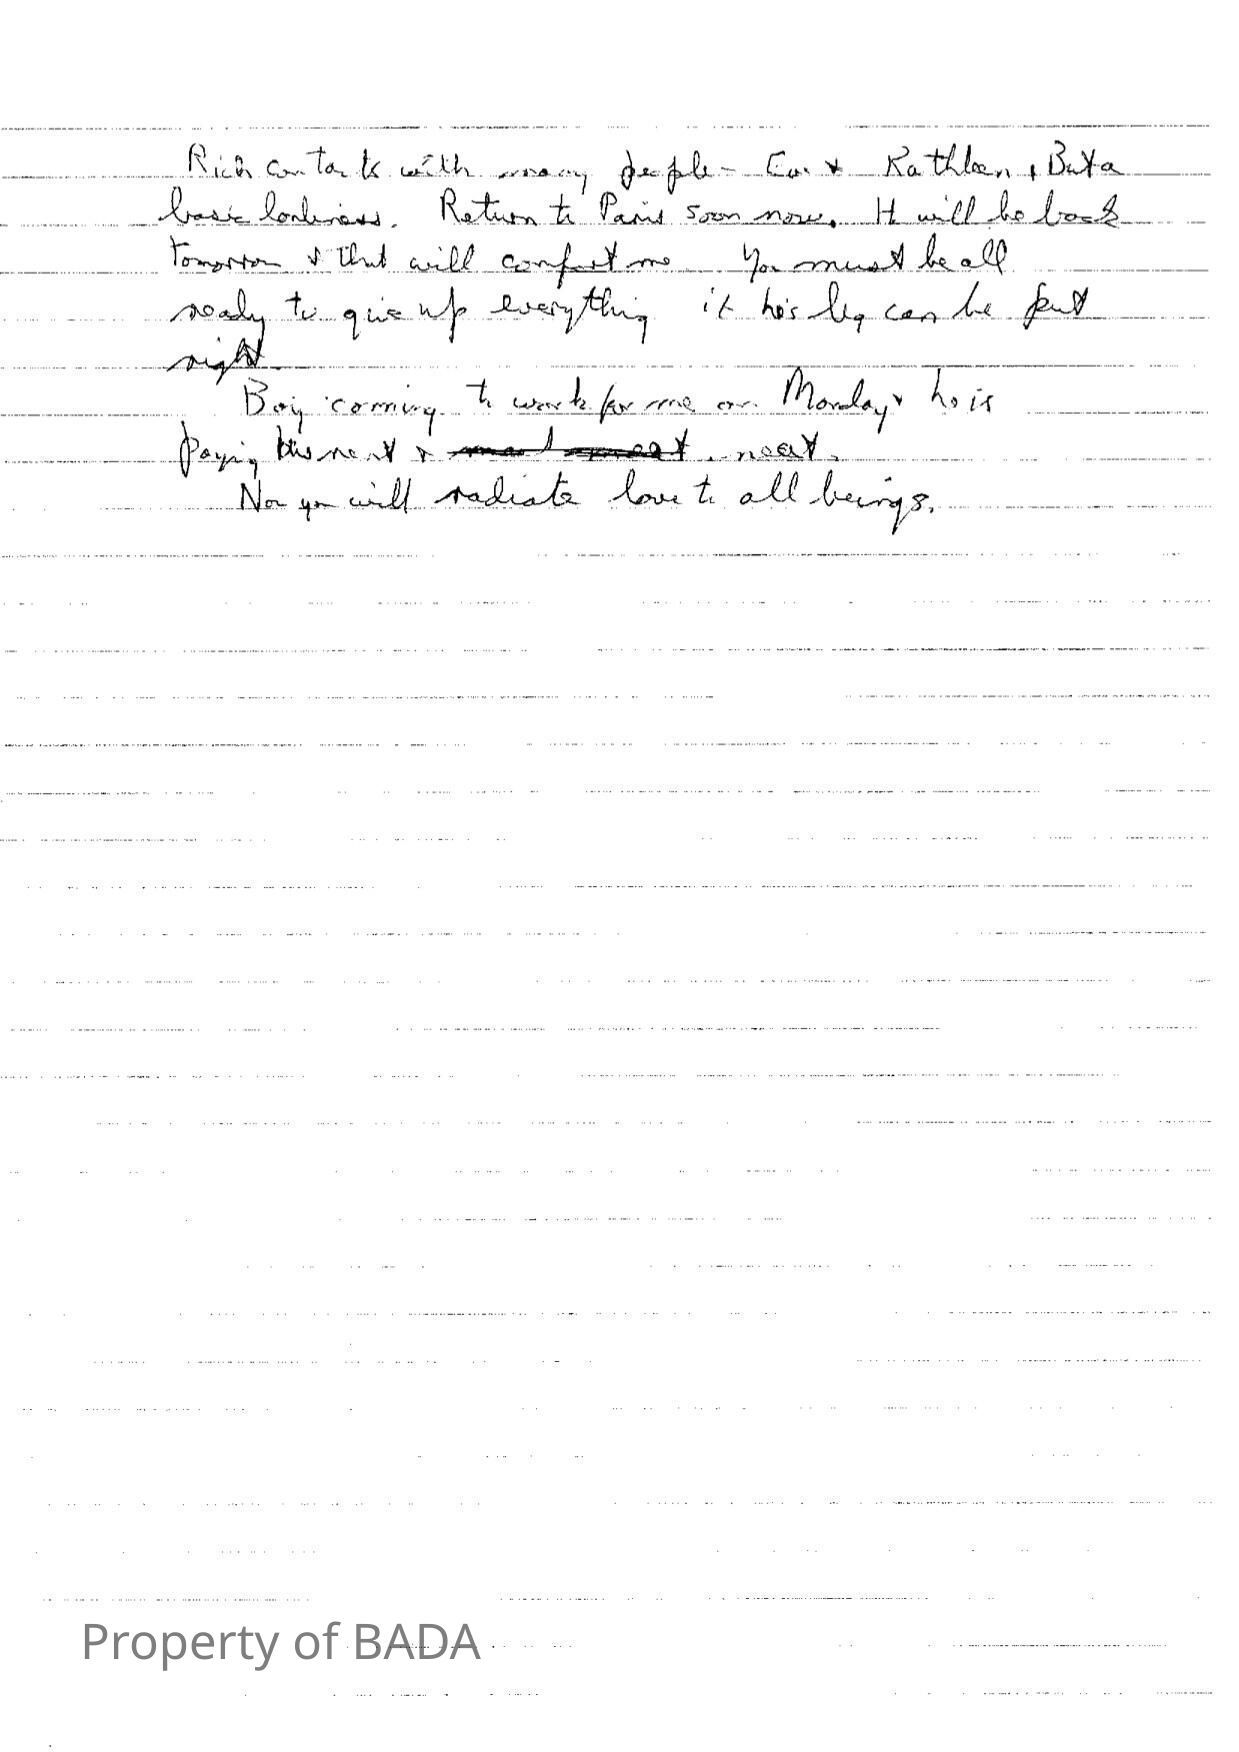 Rich contacts with many people - Eva & Kathleen, & But a
basic loneliness. Return to Paris soon now. H will be back
tomorrow & that will comfort me You must be all
ready to give up everything if his leg can be put
right
Boy coming to work for me on Monday & he is
paying his rent & neat.
Now you will radiate love to all beings.
Property of BADA